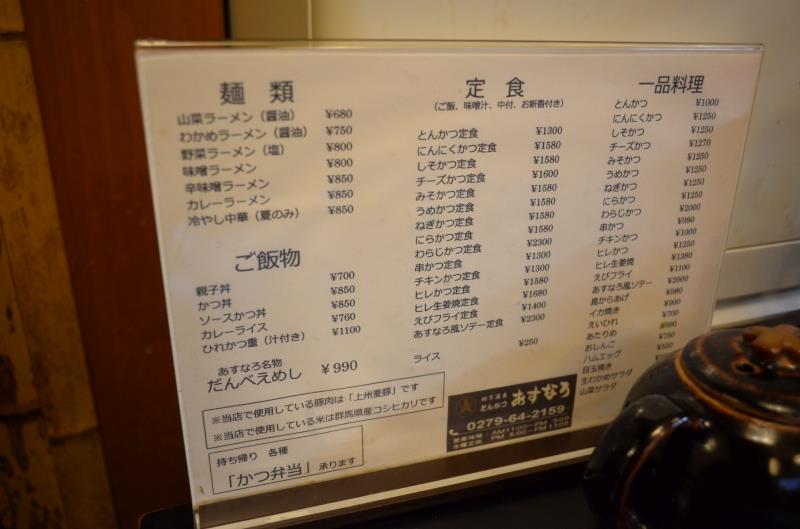 麺類
山菜ラーメン（醤油） ¥680
わかめラーメン（醤油） ¥750
野菜ラーメン（塩） ¥800
味噌ラーメン ¥800
辛味噌ラーメン ¥850
カレーラーメン ¥850
冷やし中華（夏のみ） ¥850
ご飯物
親子丼 ¥700
かつ丼 ¥850
ソースかつ丼 ¥850
カレーライス ¥760
ひれかつ重（汁付き） ¥1100
あすなろ名物
だんべえめし ¥990
※当店で使用している豚肉は「上州麦豚」です
※当店で使用している米は群馬県産コシヒカリです
持ち帰り 各種
「かつ弁当」承ります
定食
（ご飯、味噌汁、中付、お新香付き）
とんかつ定食 ¥1300
にんにくかつ定食 ¥1580
しそかつ定食 ¥1580
チーズかつ定食 ¥1600
みそかつ定食 ¥1580
うめかつ定食 ¥1580
ねぎかつ定食 ¥1580
にらかつ定食 ¥1580
わらじかつ定食 ¥2300
串かつ定食 ¥1300
チキンかつ定食 ¥1300
ヒレかつ定食 ¥1580
ヒレ生姜焼定食 ¥1680
えびフライ定食 ¥1400
あすなろ風ソテー定食 ¥2300
ライス ¥250
一品料理
とんかつ ¥1000
にんにくかつ ¥1250
しそかつ ¥1250
チーズかつ ¥1270
みそかつ ¥1250
うめかつ ¥1250
ねぎかつ ¥1250
にらかつ ¥1250
わらじかつ ¥2000
串かつ ¥980
チキンかつ ¥1000
ヒレかつ ¥1250
ヒレ生姜焼 ¥1380
えびフライ ¥1100
あすなろ風ソテー ¥2000
鳥からあげ ¥980
イカ焼き ¥900
えいひれ ¥700
あたりめ
おしんこ
ハムエッグ
目玉焼き
生わかめサラダ
山菜サラダ
とんかつ あすなろ
0279-64-2159